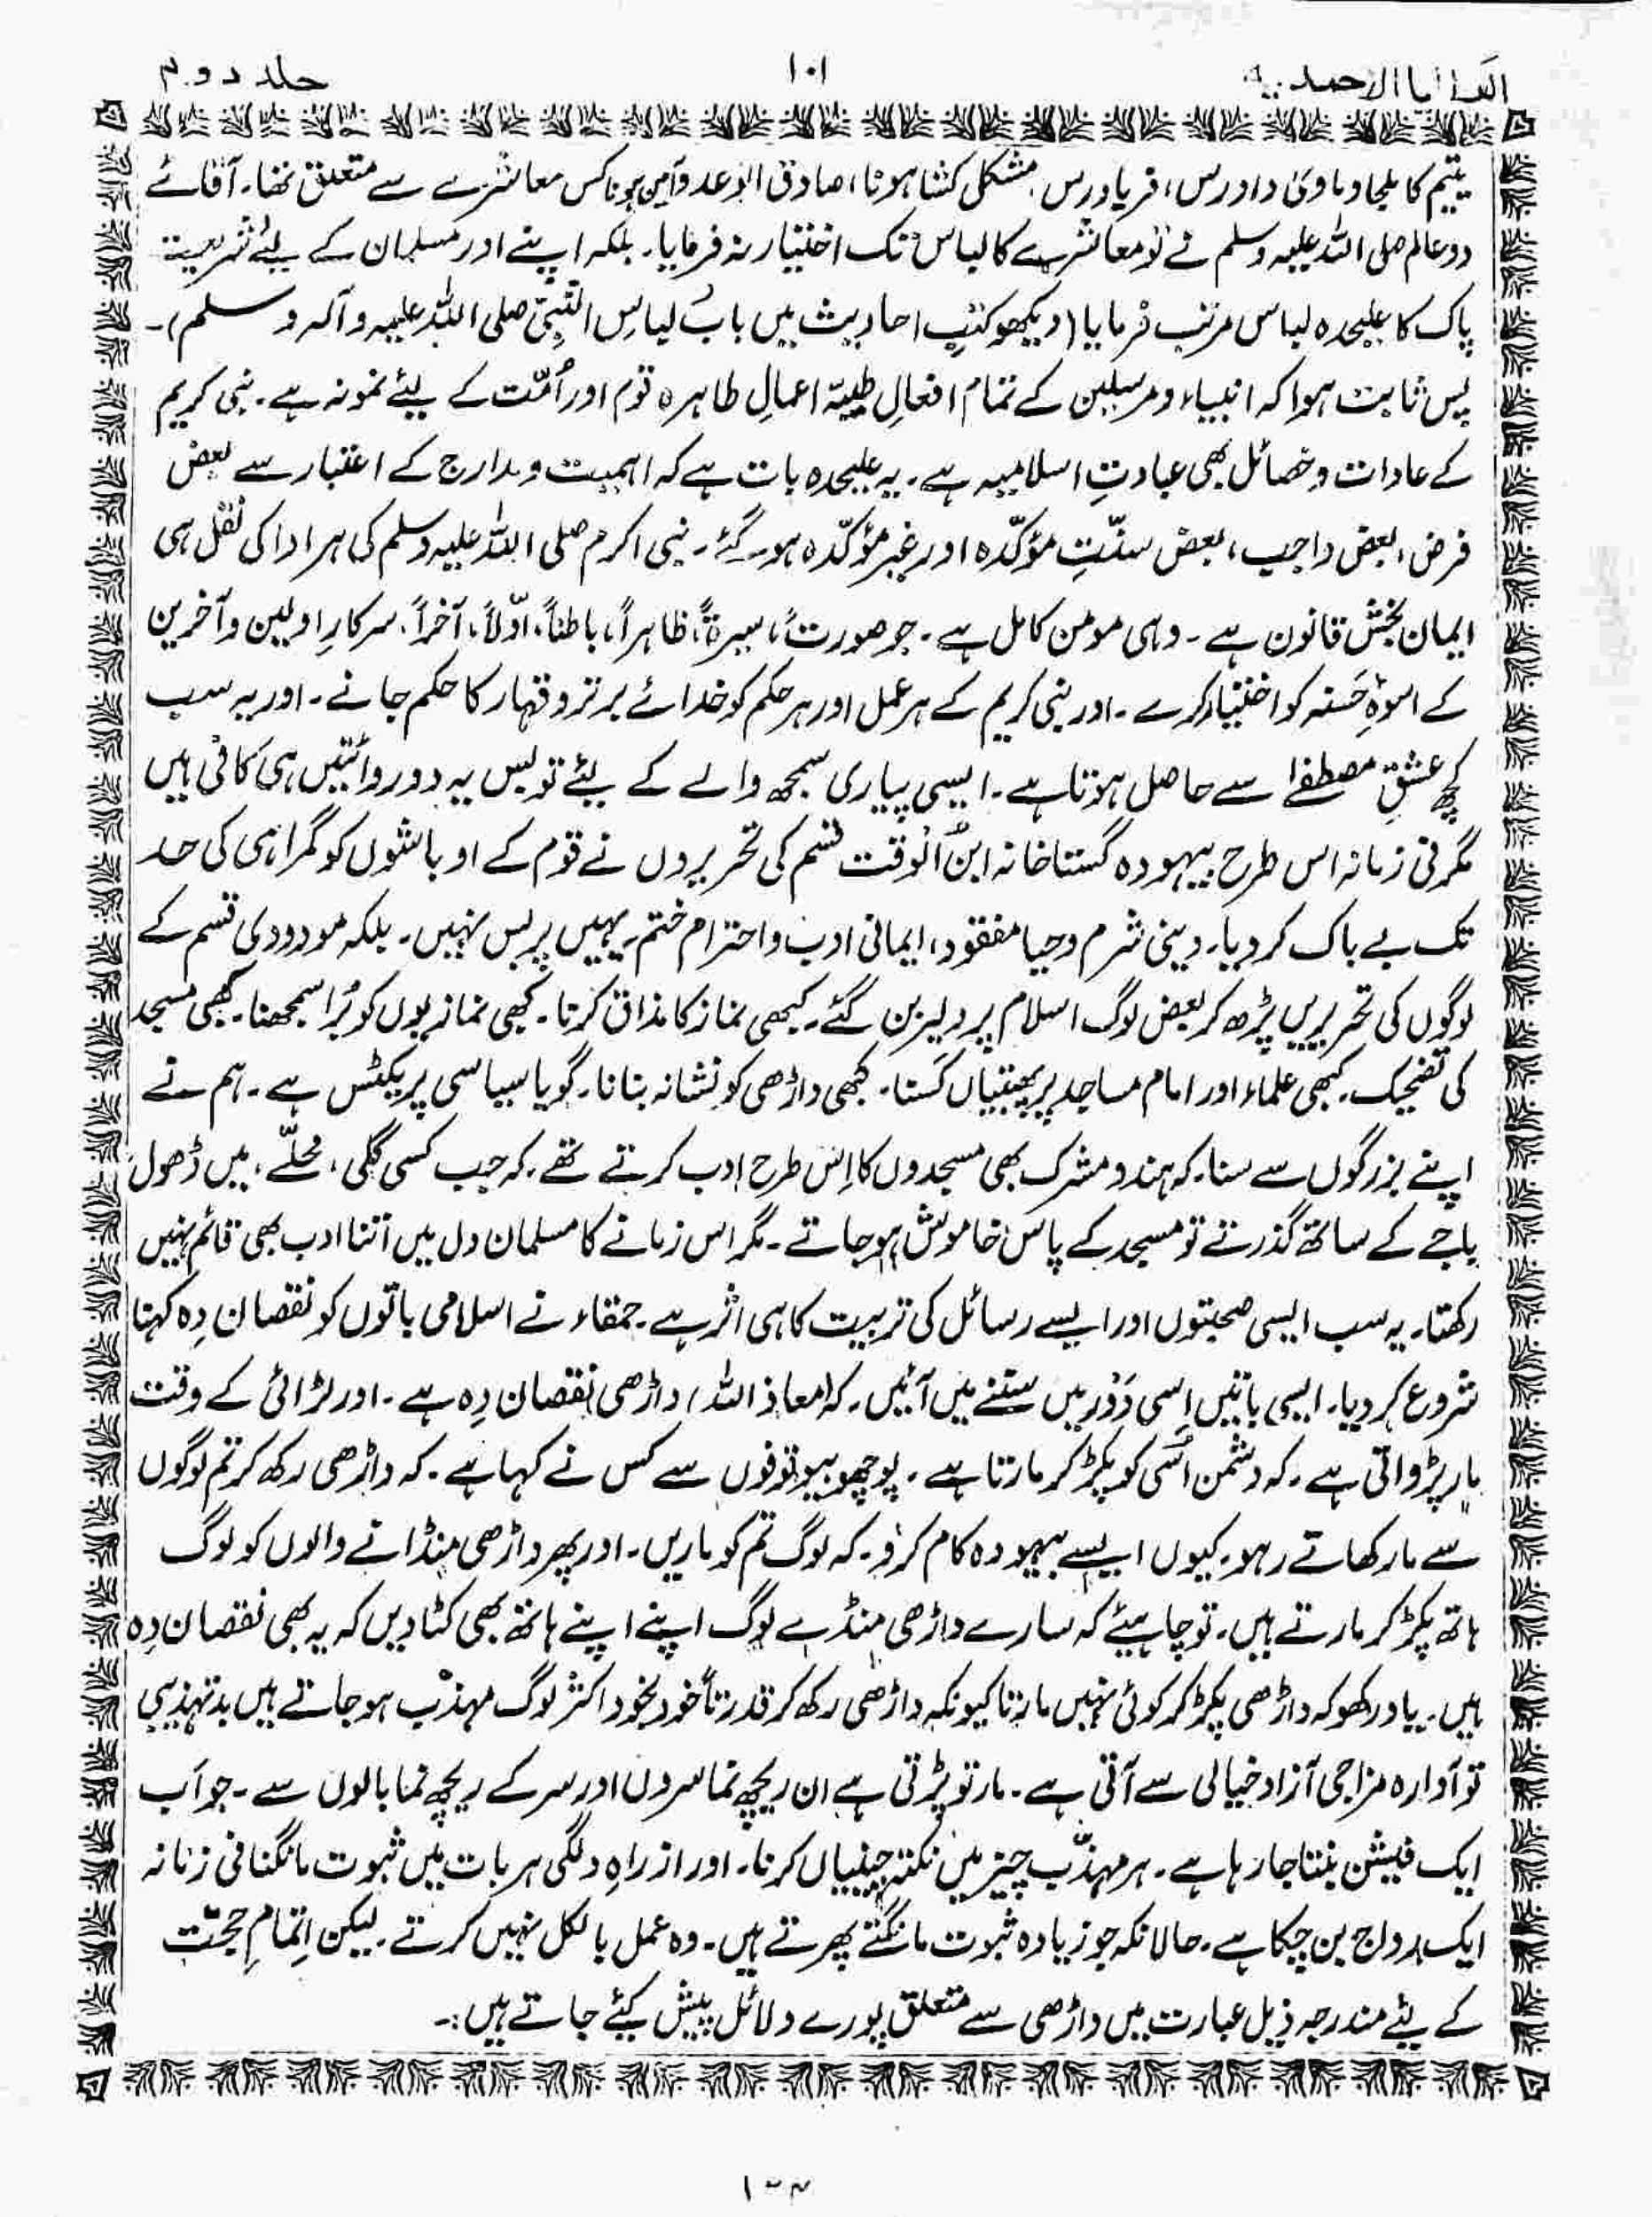 العطایا الاحمدیہ
۱۰۱
جلد دوم
یتیم کا ملجا و ماویٰ داورس، فریاد رس، مشکل کشا ہونا، صادق الوعد و آمین ہونا کس معاشرے سے متعلق تھا۔ آقائے
دو عالم صلی اللہ علیہ وسلم نے تو معاشرے کا لباس تک اختیار نہ فرمایا۔ بلکہ اپنے اور مسلمان کے لیئے شریعت
پاک کا علیحدہ لباس مرتب فرمایا (دیکھو کتبِ احادیث میں بابُ لباسِ النَّبِیِّ صلی اللہ علیہ و آلہ و سلم)۔
پس ثابت ہوا کہ انبیاء و مرسلین کے تمام افعالِ طیبّہ اعمالِ طاہرہ قوم اور اُمّت کے لیئے نمونہ ہے۔ نبی کریم
کے عادات و خصائل بھی عبادتِ اسلامیہ ہے۔ یہ علیحدہ بات ہے کہ اہمیت و مدارج کے اعتبار سے بعض
فرض، بعض واجب، بعض سنّتِ مؤکّدہ اور غیر مؤکّدہ ہو گئے۔ نبی اکرم صلی اللہ علیہ وسلم کی ہر ادا کی نقل ہی
ایمان بخش قانون ہے۔ وہی مومن کامل ہے۔ جو صورتاً، سیرۃً، ظاہراً، باطناً، اوّلاً، آخراً، سرکارِ اولین و آخرین
کے اسوۂ حَسنہ کو اختیار کرے۔ اور نبی کریم کے ہر عمل اور ہر حکم کو خدائے برتر و قہار کا حکم جانے۔ اور یہ سب
کچھ عشقِ مصطفےٰ سے حاصل ہوتا ہے۔ ایسی پیاری سمجھ والے کے لیئے تو بس یہ دو روائتیں ہی کافی ہیں
مگر فی زمانہ اس طرح بیہودہ گستاخانہ ابنُ الْوقت قسم کی تحریروں نے قوم کے اوباشوں کو گمراہی کی حد
تک بے باک کر دیا۔ دینی شرم و حیا مفقود، ایمانی ادب و احترام ختم۔ یہیں پر بس نہیں۔ بلکہ مودودی قسم کے
لوگوں کی تحریریں پڑھ کر بعض لوگ اسلام پر دلیر بن گئے۔ کبھی نماز کا مذاق کرتا۔ کبھی نمازیوں کو بُرا سمجھنا۔ کبھی مسجد
کی تضحیک۔ کبھی علماء اور امام مساجد پر پھبتیاں کَسنا۔ کبھی داڑھی کو نشانہ بنانا۔ گویا سیاسی پریکٹس ہے۔ ہم نے
اپنے بزرگوں سے سنا۔ کہ ہندو مشرک بھی مسجدوں کا اِس طرح ادب کرتے تھے۔ کہ جب کسی گلی، محلّے، میں ڈھول
باجے کے ساتھ گذرتے تو مسجد کے پاس خاموش ہو جاتے۔ مگر اس زمانے کا مسلمان دل میں اتنا ادب بھی قائم نہیں
رکھتا۔ یہ سب ایسی صحبتوں اور ایسے رسائل کی تربیت کا ہی اثر ہے۔ حمقاء نے اسلامی باتوں کو نقصان دِہ کہنا
شروع کر دیا۔ ایسی باتیں اِسی دَوْر میں سننے میں آئیں۔ کہ (معاذ اللہ) داڑھی نقصان دِہ ہے۔ اور لڑائی کے وقت
مار پڑواتی ہے۔ کہ دشمن اُسی کو پکڑ کر مارتا ہے۔ پوچھو بیوقوفوں سے کس نے کہا ہے۔ کہ داڑھی رکھ کر تم لوگوں
سے مار کھاتے رہو۔ کیوں ایسے بیہودہ کام کرو۔ کہ لوگ تم کو ماریں۔ اور پھر داڑھی منڈانے والوں کو لوگ
ہاتھ پکڑ کر مارتے ہیں۔ تو چاہیئے کہ سارے داڑھی منڈے لوگ اپنے اپنے ہاتھ بھی کٹا دیں کہ یہ بھی نقصان دِہ
ہیں۔ یاد رکھو کہ داڑھی پکڑ کر کوئی نہیں مارتا کیونکہ داڑھی رکھ کر قدرتاً خود بخود اکثر لوگ مہذّب ہو جاتے ہیں بد تہذیبی
تو آوارہ مزاجی آزاد خیالی سے آتی ہے۔ مار تو پڑتی ہے ان ریچھ نما سروں اور سر کے ریچھ نما بالوں سے۔ جو اَب
ایک فیشن بنتا جا رہا ہے۔ ہر مہذّب چیز میں نکتہ چینیاں کرنا۔ اور از راہِ دلگی ہر بات میں ثبوت مانگنا فی زمانہ
ایک رواج بن چکا ہے۔ حالانکہ جو زیادہ ثبوت مانگتے پھرتے ہیں۔ وہ عمل بالکل نہیں کرتے۔ لیکن اِتمامِ حجّت
کے لیئے مندرجہ ذیل عبارت میں داڑھی سے متعلق پورے دلائل پیش کیئے جاتے ہیں:۔